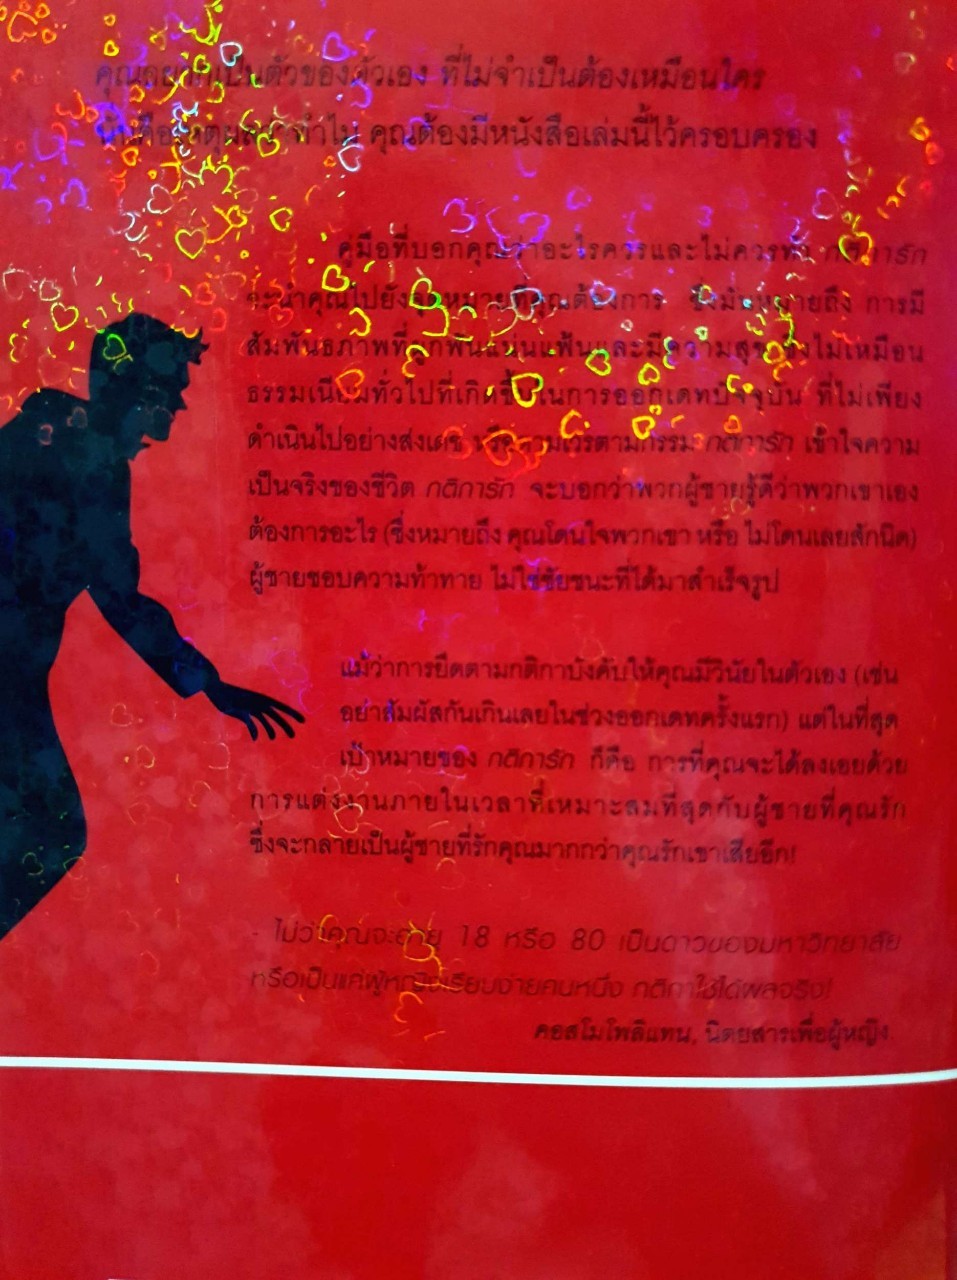 คุณอยากเป็นตัวของตัวเอง ที่ไม่จำเป็นต้องเหมือนใคร
นั่นคือเหตุผลว่าทำไม คุณต้องมีหนังสือเล่มนี้ไว้ครอบครอง
คู่มือที่บอกคุณว่าอะไรควรและไม่ควรทำ กติการัก
จะนำคุณไปยังจุดหมายที่คุณต้องการ ซึ่งมันหมายถึง การมี
สัมพันธภาพที่ผูกพันแน่นแฟ้นและมีความสุข ซึ่งไม่เหมือน
ธรรมเนียมทั่วไปที่เกิดขึ้นในการออกเดทปัจจุบัน ที่ไม่เพียง
ดำเนินไปอย่างส่งเดช หรือตามเวรตามกรรม กติการัก เข้าใจความ
เป็นจริงของชีวิต กติการัก จะบอกว่าพวกผู้ชายรู้ดีว่าพวกเขาเอง
ต้องการอะไร (ซึ่งหมายถึง คุณโดนใจพวกเขา หรือ ไม่โดนเลยสักนิด)
ผู้ชายชอบความท้าทาย ไม่ใช่ชัยชนะที่ได้มาสำเร็จรูป
แม้ว่าการยึดตามกติกาบังคับให้คุณมีวินัยในตัวเอง (เช่น
อย่าสัมผัสกันเกินเลยในช่วงออกเดทครั้งแรก) แต่ในที่สุด
เป้าหมายของ กติการัก ก็คือ การที่คุณจะได้ลงเอยด้วย
การแต่งงานภายในเวลาที่เหมาะสมที่สุดกับผู้ชายที่คุณรัก
ซึ่งจะกลายเป็นผู้ชายที่รักคุณมากกว่าคุณรักเขาเสียอีก!
- ไม่ว่าคุณจะอายุ 18 หรือ 80 เป็นดาวของมหาวิทยาลัย
หรือเป็นแค่ผู้หญิงเรียบง่ายคนหนึ่ง กติกาใช้ได้ผลจริง!
คอสโมโพลิแทน, นิตยสารเพื่อผู้หญิง